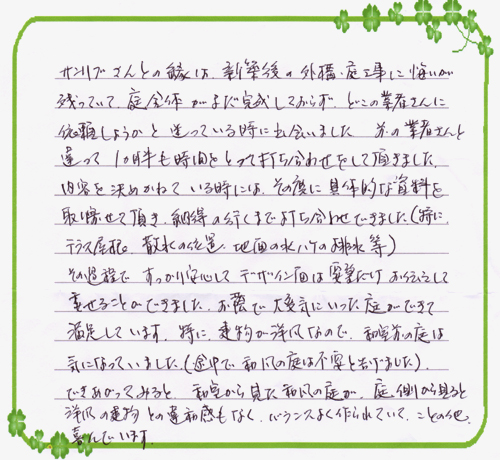 サンリブさんとの縁は、新築後の外構・庭工事に悔いが
残っていて、庭全体がまだ完成しておらず、どこの業者さんに
依頼しようかと迷っている時に出会いました。他の業者さんと
違って1ヵ月半も時間をとって打ち合わせをして頂きました。
内容を決めかねている時には、その度に具体的な資料を
取り寄せて頂き、納得の行くまで打ち合わせできました。(特に
テラス屋根、散水の位置、地面の水ハケの排水等)
その過程で すっかり安心して デザイン面は要望だけお伝えして
任せることができました。お蔭で大変気にいった庭ができて
満足しています。特に、建物が洋風なので、和室前の庭は
気になっていました。(途中で和風の庭は不要と告げました)。
できあがってみると、和室から見た和風の庭が、庭側から見ると
洋風の建物との違和感もなく、バランスよく作られていて、ことの他、
喜んでいます。